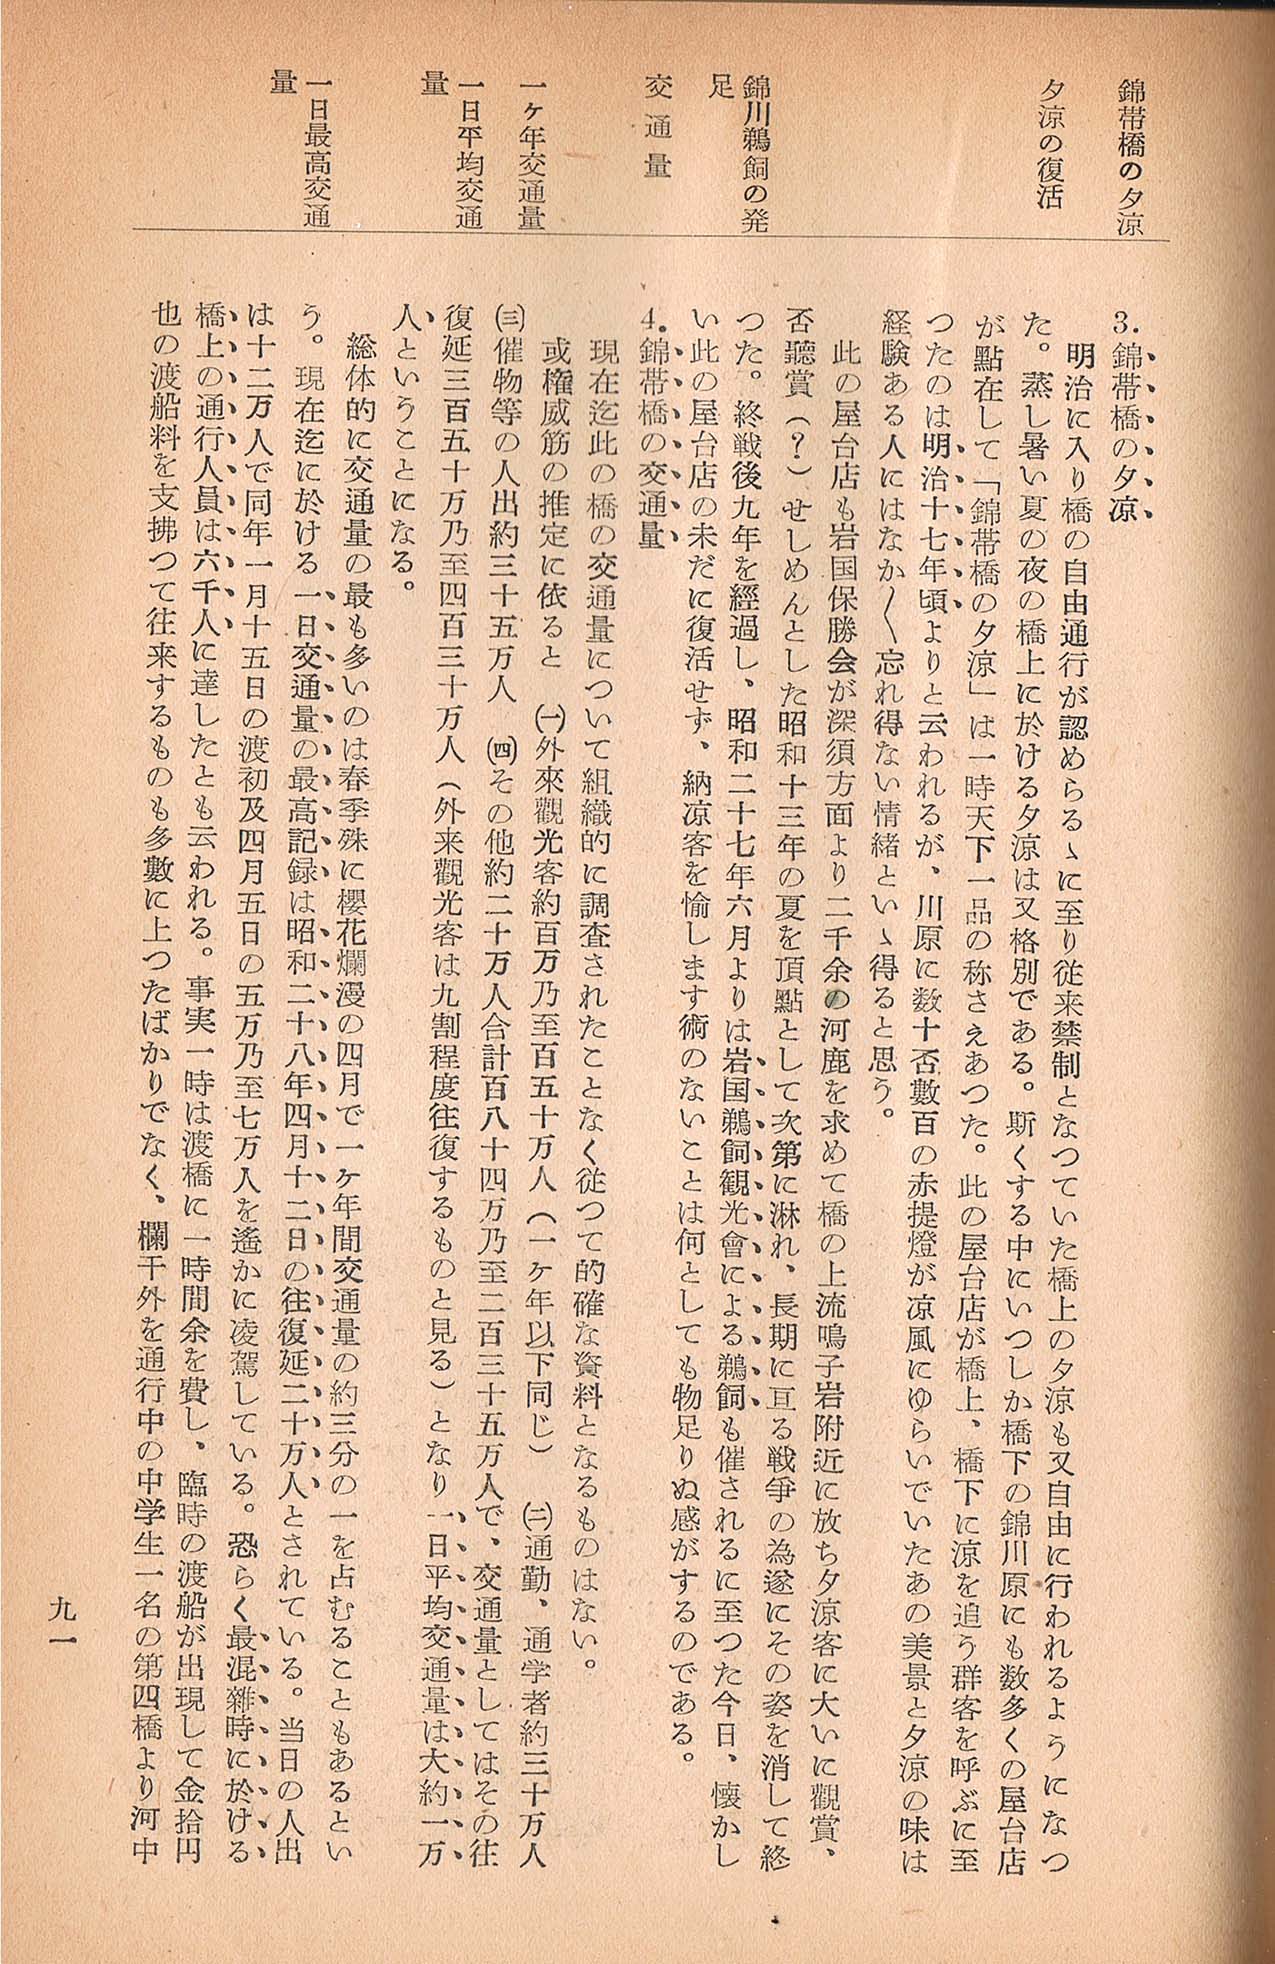 錦帯橋の夕涼
夕涼の復活
錦川鵜飼の発
足
交通量
一ヶ年交通量
一日平均交通
量
一日最高交通
量
3.錦帯橋の夕凉
明治に入り橋の自由通行が認めらるゝに至り従来禁制となつていた橋上の夕涼も又自由に行われるようになつ
た。蒸し暑い夏の夜の橋上に於ける夕涼は又格別である。斯くする中にいつしか橋下の錦川原にも数多くの屋台店
が點在して「錦帯橋の夕涼」は一時天下一品の称さぇあつた。此の屋台店が橋上、橋下に涼を追う群客を呼ぶに至
つたのは明治十七年頃よりと云われるが、川原に数十否數百の赤提燈が凉風にゆらいでいたあの美景と夕涼の味は
経験ある人にはなか〱忘れ得ない情緒といゝ得ると思う。
此の屋台店も岩国保勝会が深須方面より二千余の河鹿を求めて橋の上流鳴子岩附近に放ち夕涼客に大いに觀賞、
否聽賞(?)せしめんとした昭和十三年の夏を頂點として次第に淋れ、長期に亘る戦爭の為遂にその姿を消して終
つた。終戦後九年を經過し、昭和二十七年六月よりは岩国鵜飼観光會による鵜飼も催されるに至つた今日、懐かし
い此の屋台店の未だに復活せず、納凉客を愉します術のないことは何としても物足りぬ感がするのである。
4.錦帯橋の交通量
現在迄此の橋の交通量について組織的に調査されたことなく従つて的確な資料となるものはない。
或権威筋の推定に依ると ㈠外來觀光客約百万乃至百五十万人(一ヶ年以下同じ) ㈡通勤、通学者約三十万人
㈢催物等の人出約三十五万人 ㈣その他約二十万人合計百八十四万乃至二百三十五万人で、交通量としてはその往
復延三百五十万乃至四百三十万人(外来觀光客は九割程度往復するものと見る)となり一日平均交通量は大約一万
人ということになる。
総体的に交通量の最も多いのは春季殊に櫻花爛漫の四月で一ヶ年間交通量の約三分の一を占むることもあるとい
う。現在迄に於ける一日交通量の最高記録は昭和二十八年四月十二日の往復延二十万人とされている。当日の人出
は十二万人で同年一月十五日の渡初及四月五日の五万乃至七万人を遙かに凌駕している。恐らく最混雜時に於ける
橋上の通行人員は六千人に達したとも云われる。事実一時は渡橋に一時間余を費し、臨時の渡船が出現して金拾円
也の渡船料を支拂つて往来するものも多數に上つたばかりでなく、欄干外を通行中の中学生一名の第四橋より河中
九一